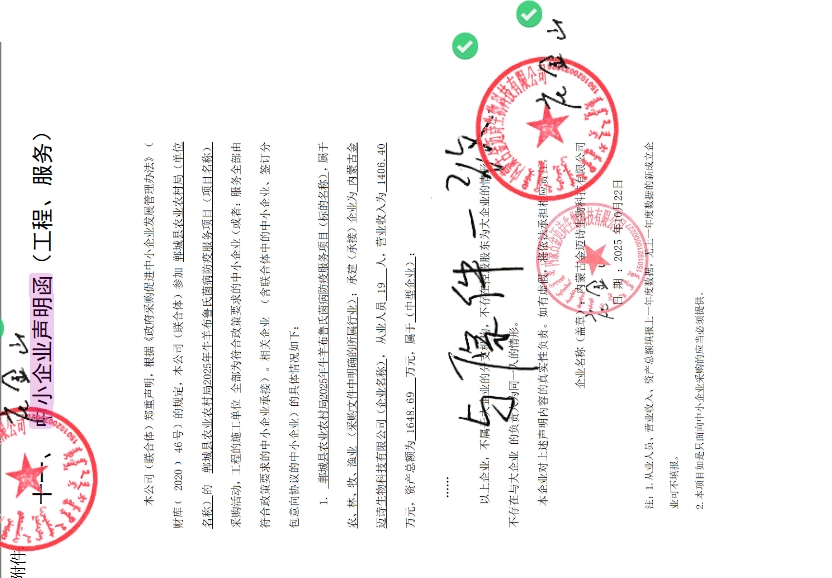 附件
十一、中小企业声明函（工程、服务）
本公司（联合体）郑重声明，根据《政府采购促进中小企业发展管理办法》（
财库（2020）46号）的规定，本公司（联合体）参加 鄄城县农业农村局（单位
名称）的 鄄城县农业农村局2025年牛羊布鲁氏菌病防疫服务项目（项目名称）
采购活动，工程的施工单位 全部为符合政策要求的中小企业（或者：服务全部由
符合政策要求的中小企业承接）。相关企业 （含联合体中的中小企业、签订分
包意向协议的中小企业）的具体情况如下：
1. 鄄城县农业农村局2025年牛羊布鲁氏菌病防疫服务项目（标的名称），属于
农、林、牧、渔业（采购文件中明确的所属行业）；承建（承接）企业为 内蒙古金
迈诗生物科技有限公司（企业名称），从业人员 19 人，营业收入为 1406.40
万元，资产总额为 1648.69 万元，属于（中型企业）；
......
以上企业，不属 大企业的分支机构，不存在 股股东为大企业的情形
不存在与大企业 的负责人为同一人的情形。
本企业对上述声明内容的真实性负责。如有虚假，将依法承担相应责任。
与原件一致
企业名称（盖章）：内蒙古金迈诗生物科技有限公司
日 期：2025 年10月22日
注：1. 从业人员、营业收入、资产总额填报上一年度数据，无上一年度数据的新成立企
业可不填报。
2. 本项目如是只面向中小企业采购的应当必须提供。